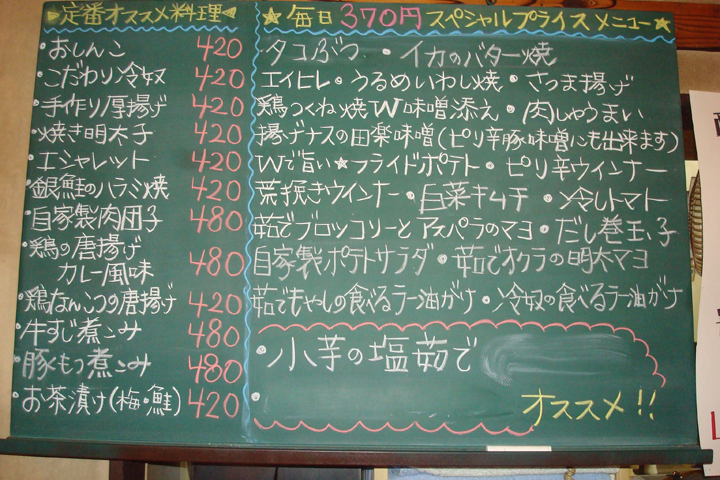 定番オススメ料理
・おしんこ 420
・こだわり冷奴 420
・手作り厚揚げ 420
・焼き明太子 420
・エシャレット 420
・銀鮭のハラミ焼 420
・自家製肉団子 480
・鶏の唐揚げ
カレー風味 480
・鶏なんこつの唐揚げ 420
・牛すじ煮こみ 480
・豚もつ煮こみ 480
・お茶漬け(梅・鮭) 420
★毎日370円スペシャルプライスメニュー★
タコぶつ・イカのバター焼
エイヒレ・うるめいわし焼・さつま揚げ
鶏つくね焼W味噌添え・肉しゅうまい
揚げナスの田楽味噌(ピリ辛豚味噌にも出来ます)
Wで旨い★フライドポテト・ピリ辛ウインナー
荒挽きウインナー・白菜キムチ・冷しトマト
茹でブロッコリーとアスパラのマヨ・だし巻玉子
自家製ポテトサラダ・茹でオクラの明太マヨ
茹でもやしの食べるラー油がけ・冷奴の食べるラー油がけ
・小芋の塩茹で
・
オススメ!!